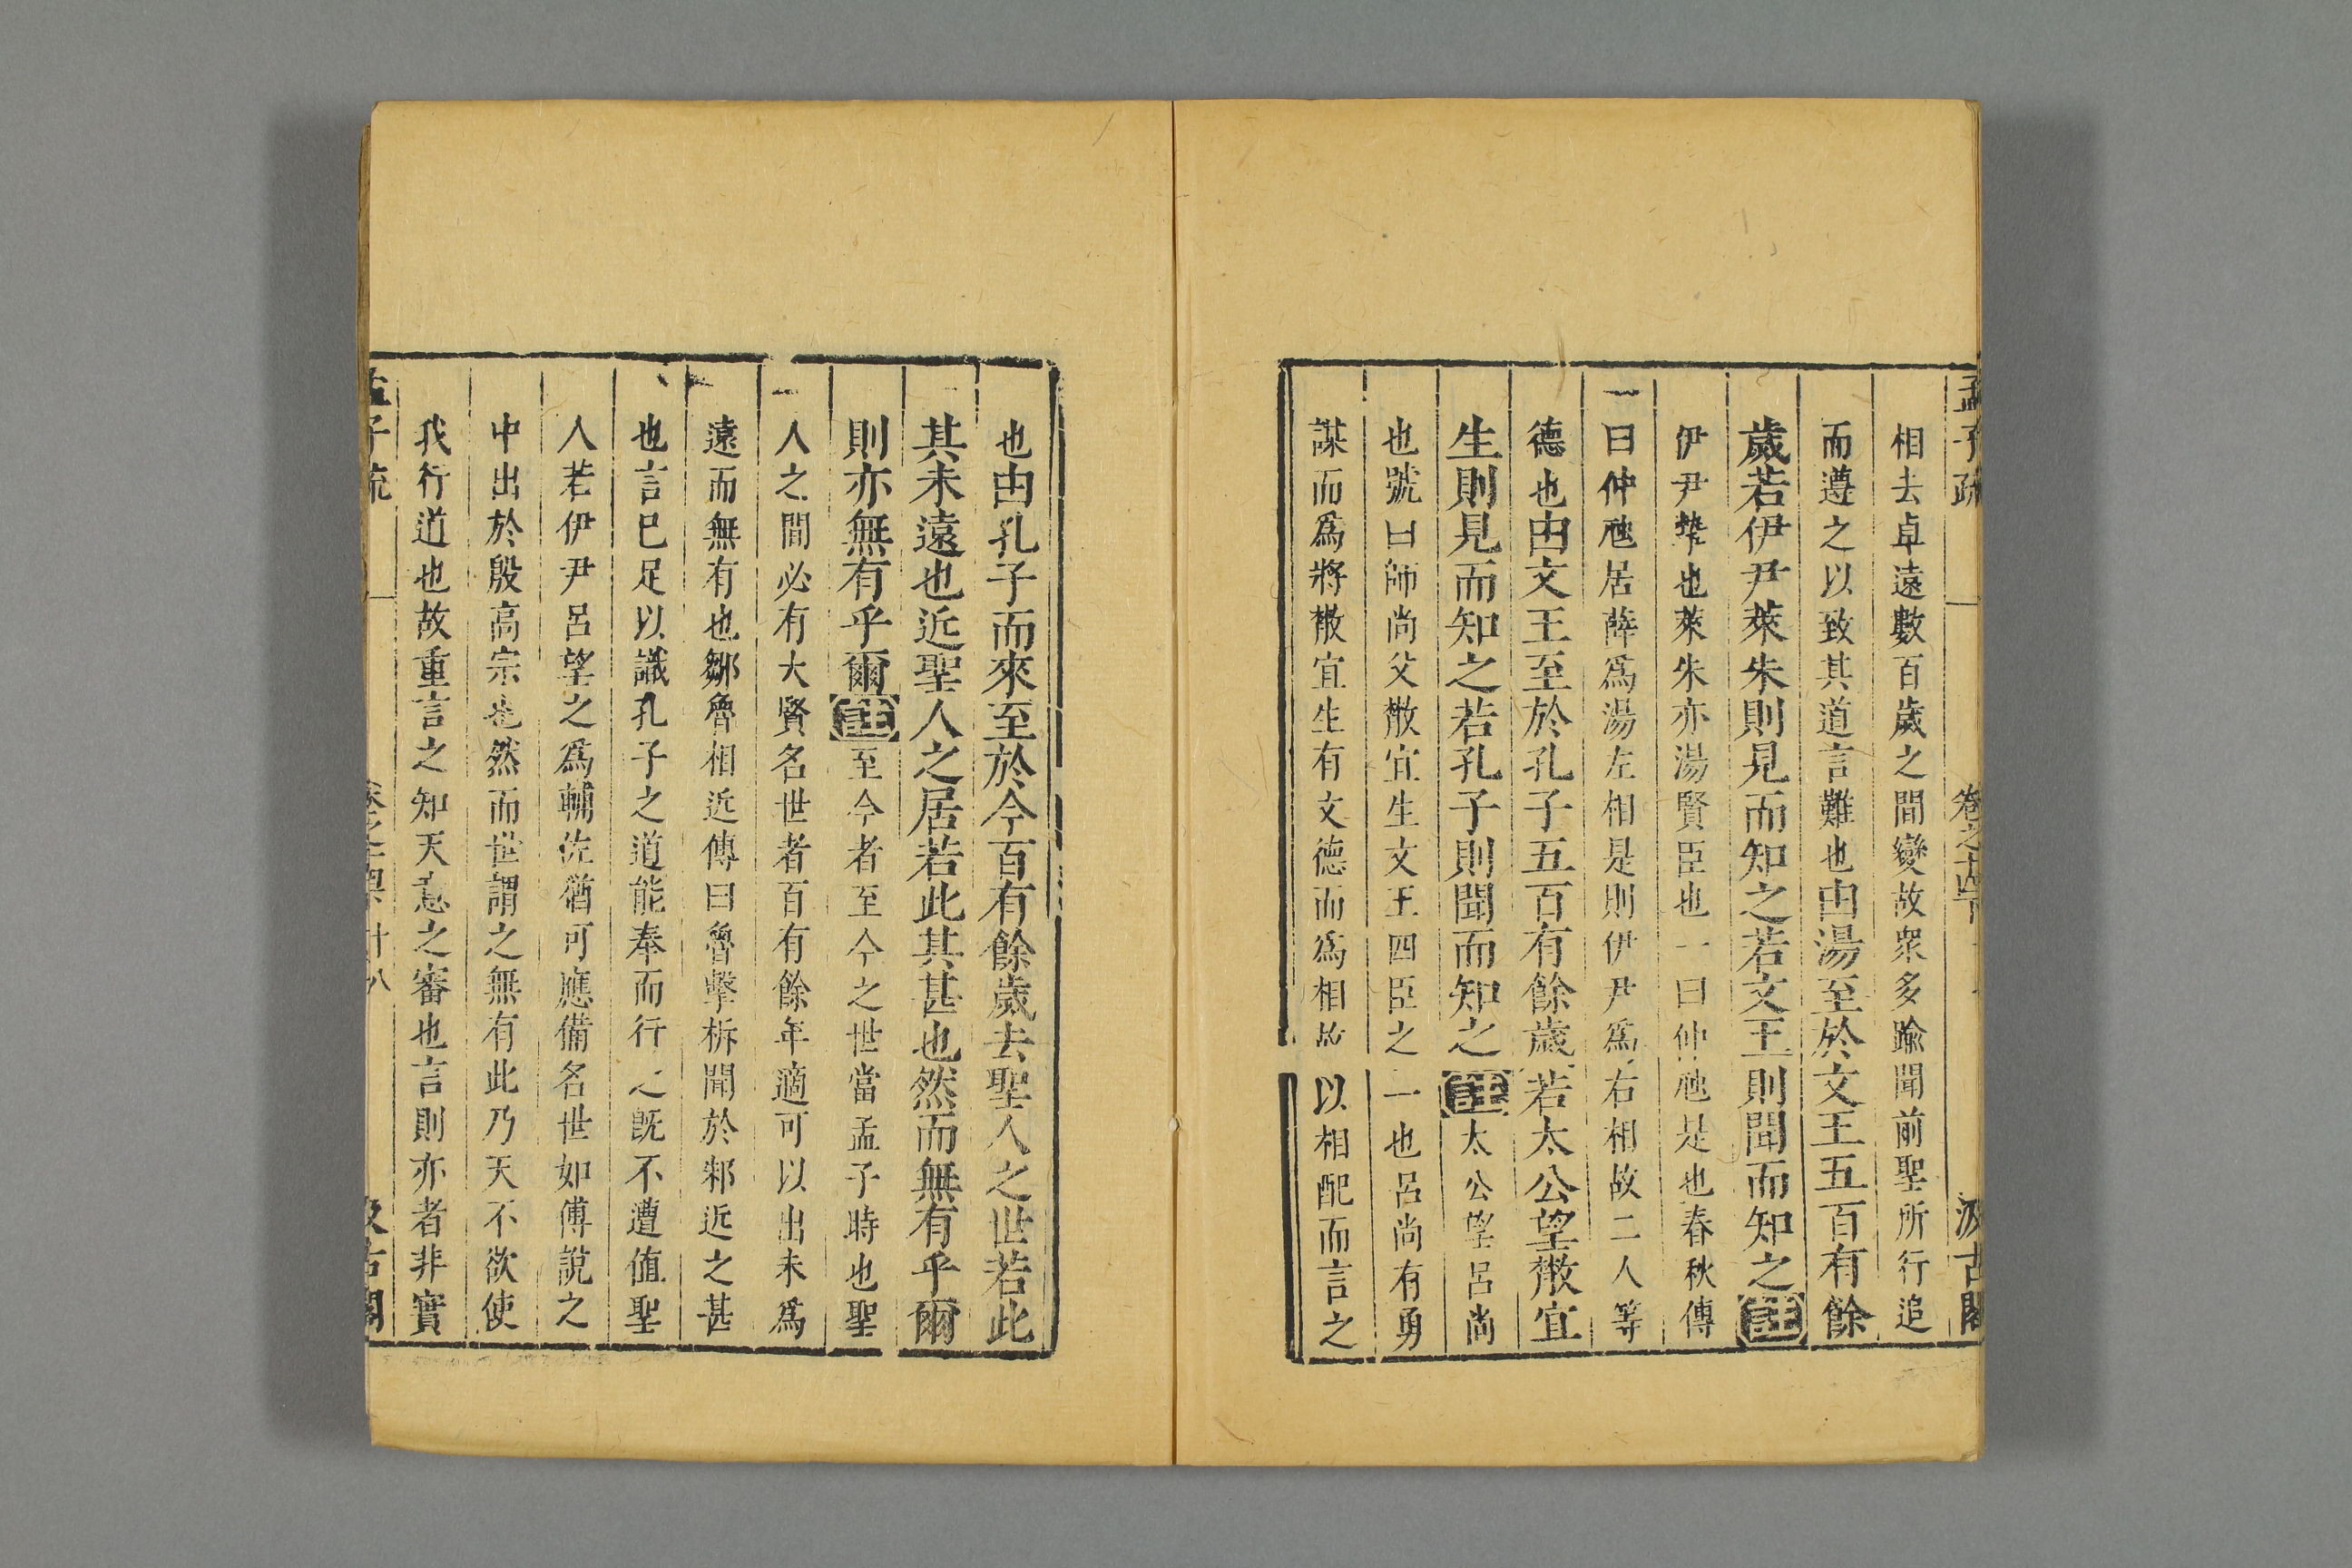 孟子疏 卷之十四下 汲古閣
相去卓遠數百歲之間變故衆多踰聞前聖所行追
而遵之以致其道言難也由湯至於文王五百有餘
歲若伊尹萊朱則見而知之若文王則聞而知之註
伊尹摯也萊朱亦湯賢臣也一曰仲虺是也春秋傳
曰仲虺居薛爲湯左相是則伊尹爲右相故二人等
德也由文王至於孔子五百有餘歲若太公望散宜
生則見而知之若孔子則聞而知之註太公望呂尚
也號曰師尚父散宜生文王四臣之一也呂尚有勇
謀而爲將散宜生有文德而爲相故以相配而言之
也由孔子而來至於今百有餘歲去聖人之世若此
其未遠也近聖人之居若此其甚也然而無有乎爾
則亦無有乎爾註至今者至今之世當孟子時也聖
人之間必有大賢名世者百有餘年適可以出未爲
遠而無有也鄒魯相近傳曰魯擊柝聞於邾近之甚
也言已足以識孔子之道能奉而行之既不遭值聖
人若伊尹呂望之爲輔佐猶可應備名世如傅說之
中出於殷高宗也然而世謂之無有此乃天不欲使
我行道也故重言之知天意之審也言則亦者非實
孟子疏 卅八 汲古閣